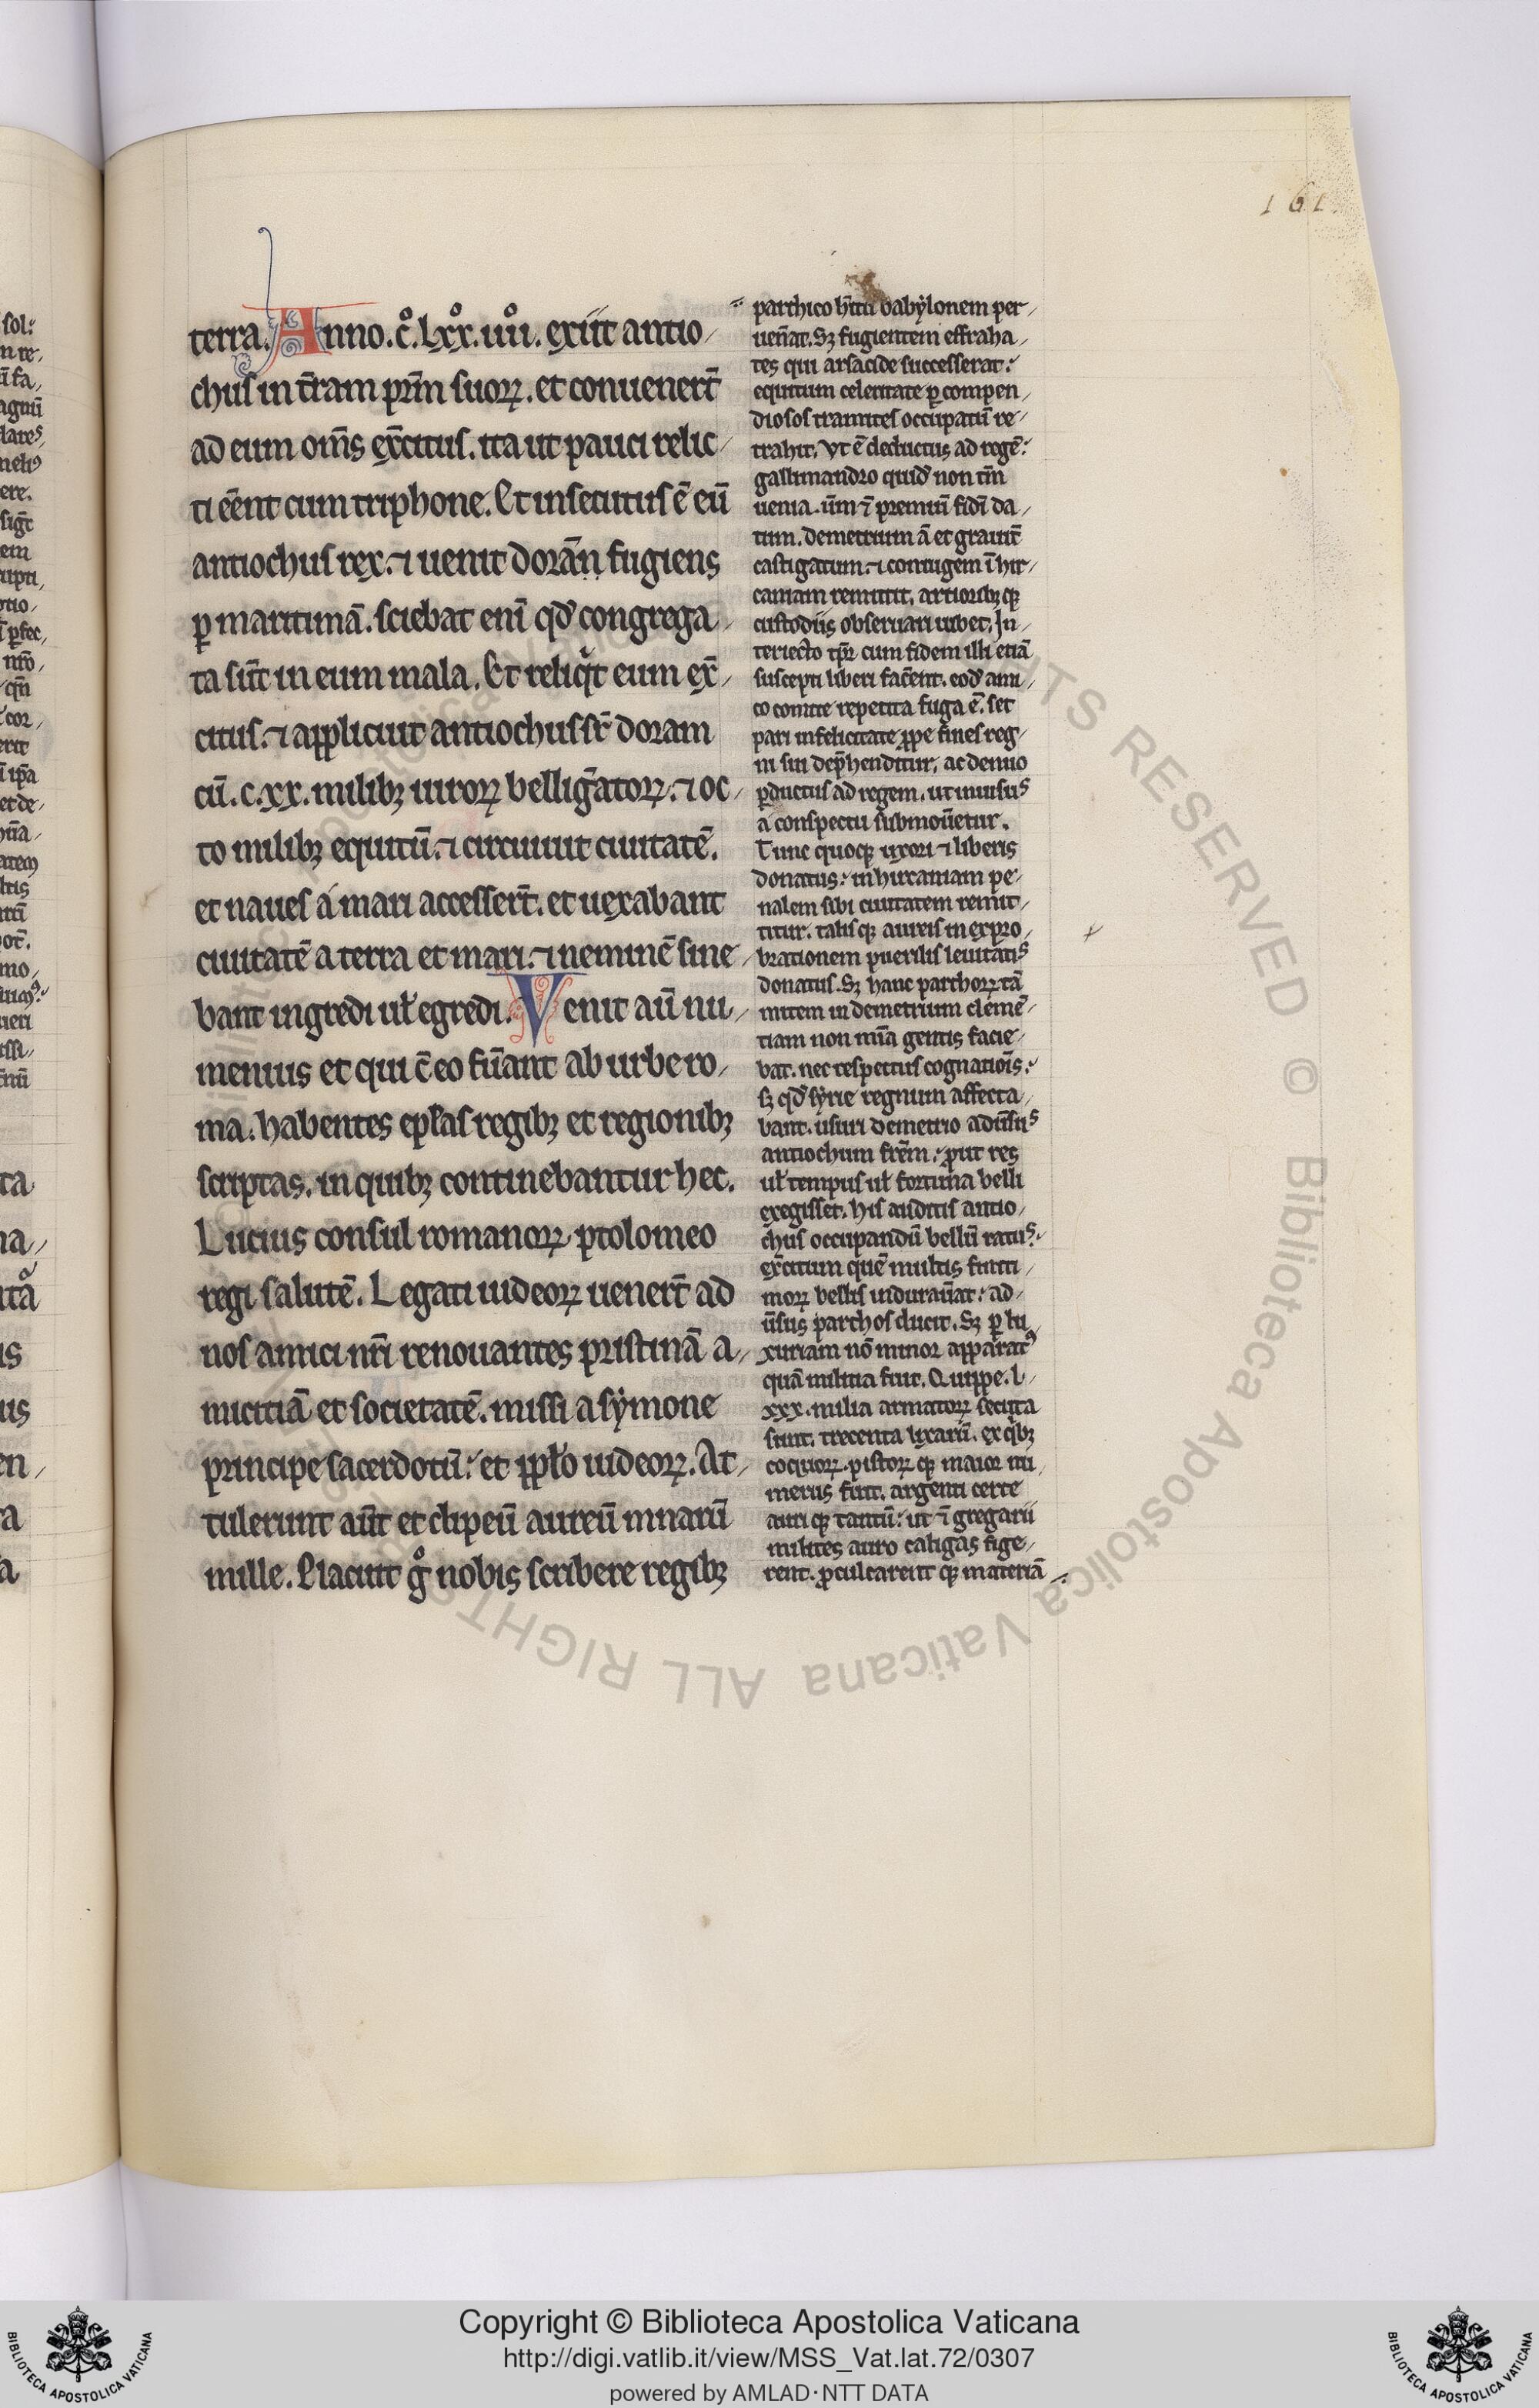 161.
terra. Anno .c̊. lxx̊. iiii̊. exiit antio
chus in t̄ram pr̄m suoꝝ. et conuenerт̄
ad eum om̄s ex̄citus. ita ut pauci relic
ti ēent cum triphone. Et insecutus ē eū
antiochus rex. ⁊ uenit doram̄ fugiens
ꝑ maritimā. sciebat enī qđ congrega
ta sūt in eum mala. Et reliqͥt eum ex̄
citus. ⁊ applicuit antiochus sr̄ doram
cū .c.xx. milibꝫ uiroꝝ bellig̃atoꝝ. ⁊ oc
to milibꝫ equitū. ⁊ circuiuit ciuitatē.
et naues á mari accesserт̄. et uexabant
ciuitatē a terra et mari. ⁊ neminē sine
bant ingredi uł egredi. Venit aū nu
menius et qui c̄ eo fūant ab urbe ro
ma. habentes epłas regibꝫ et regionibꝫ
scriptas. in quibꝫ continebantur hec.
Lucius consul romanoꝝ ptolomeo
regi salutē. Legati iudeoꝝ uenerт̄ ad
nos amici nr̄i renouantes pristinā a
micitiā et societatē. missi a symone
principe sacerdotū. et pp̄lo iudeoꝝ. At
tulerunt aūt et clipeū aureū mnarū
mille. Placuit g̊ nobis scribere regibꝫ
parthico h̄itu babylonem per
uen̄at. Sꝫ fugientem effraha
tes qui arsacide successerat.
equitum celeritate ꝑ compen
diosos tramites occupatū re
trahit. Vt ē deductus ad regē.
gallimandro quiđ non tm̄
uenia. um̄ ⁊ premiū fidī da
tum. demetrium ā et grauiт̄
castigatum. ⁊ coniugem ī hir
caniam remittit. artioribꝫ qꝫ
custodiis obseruari iubet. In
teriecto tp̄r cum fidem illi etiā
suscepti liberi fac̄ent. eođ ami
co comite repetita fuga ē. set
pari infelicitate ꝓpe fines reg
ni sui dep̄henditur. ac denuo
ꝑductus ad regem. ut inuisus
a conspectu submoūetur.
Tunc quoqꝫ uxori ⁊ liberis
donatus. in hircaniam pe
nalem sibi ciuitatem remit
titur. talis qꝫ aureis in expro
brationem puerilis leuitatis
donatus. Sꝫ hanc parthoꝝ tā
mitem in demetrium clemē
tiam non mīa gentis facie
bat. nec respectus cognatiōis.
sꝫ qđ syrie regnum affecta
bant. usuri demetrio adūsus
antiochum frēm. ꝓut res
uł tempus uł fortuna belli
exegisset. His auditis antio
chus occupandū bellū ratus.
ex̄citum quē multis finiti
moꝝ bellis indurau̅at. ad
ūsus parthos ducit. Sꝫ ꝑ lu
xuriam nō minor apparatꝰ
quā militia fuit. Quippe. l
xxx. milia armatoꝝ secuta
sunt. trecenta lixarū. ex qͥbꝫ
cocorꝝ. pistoꝝ qꝫ maior nu
merus fuit. argenti certe
auri qꝫ tantū. ut ⁊ gregarii
milites auro caligas fige
rent. ꝓculcarent qꝫ materiā
Copyright © Biblioteca Apostolica Vaticana
http://digi.vatlib.it/view/MSS_Vat.lat.72/0307
powered by AMLAD·NTT DATA